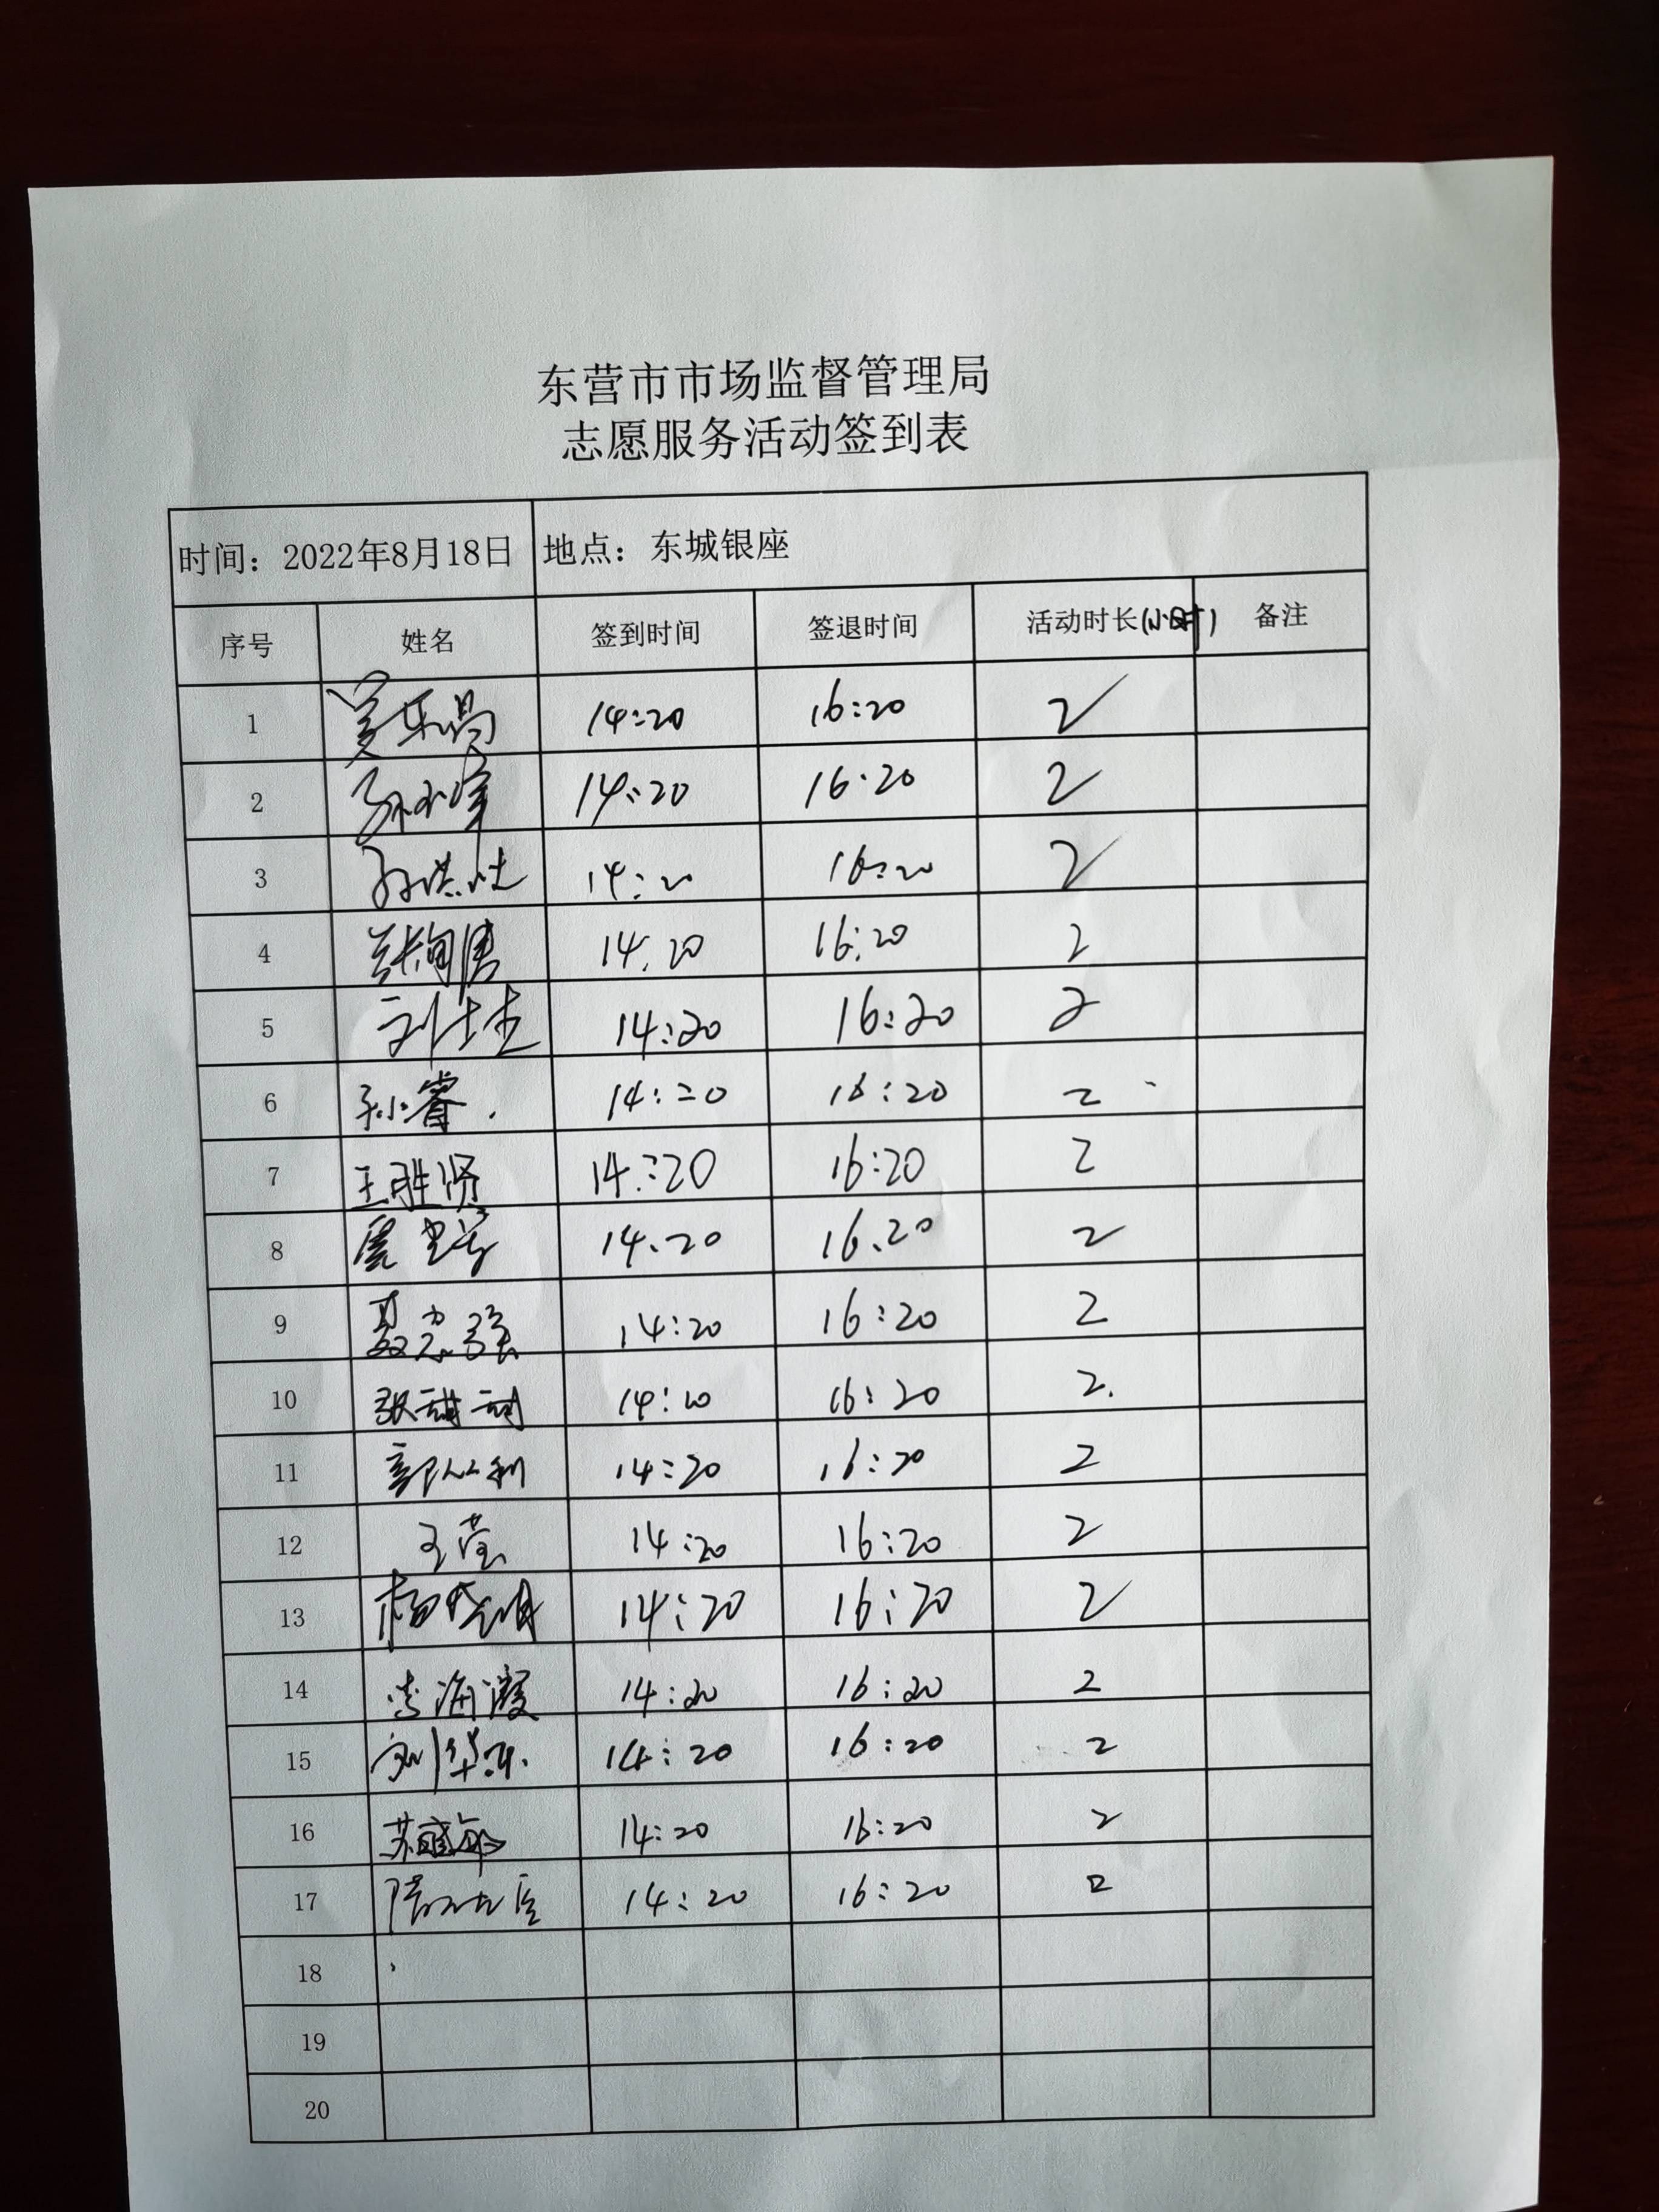 东营市市场监督管理局
志愿服务活动签到表
时间：2022年8月18日 地点：东城银座
序号 姓名 签到时间 签退时间 活动时长(小时) 备注
1 14:20 16:20 2
2 14:20 16·20 2
3 14:20 16:20 2
4 14.20 16:20 2
5 14:20 16:20 2
6 孙睿. 14:20 16:20 2
7 王胜贤 14:20 16:20 2
8 14.20 16.20 2
9 聂志强 14:20 16:20 2
10 张 14:20 16:20 2.
11 郭 利 14:20 16:20 2
12 王莹 14:20 16:20 2
13 杨晓明 14:20 16:20 2
14 李海霞 14:20 16:20 2
15 刘华东. 14:20 16:20 2
16 苏 14:20 16:20 2
17 14:20 16:20 2
18
19
20